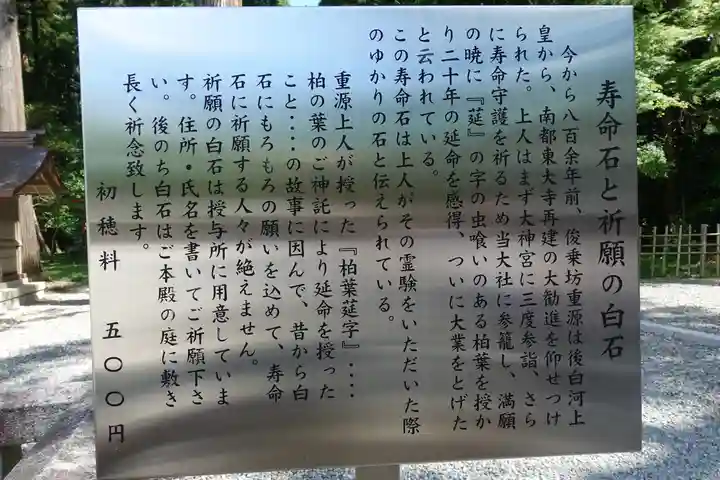 寿命石と祈願の白石
今から八百余年前、俊乗坊重源は後白河上
皇から、南都東大寺再建の大勧進を仰せつけ
られた。上人はまず大神宮に三度参詣、さら
に寿命守護を祈るため当大社に参籠し、満願
の暁に『莚』の字の虫喰いのある柏葉を授か
り二十年の延命を感得、ついに大業をとげた
と云われている。
この寿命石は上人がその霊験をいただいた際
のゆかりの石と伝えられている。
重源上人が授った『柏葉莚字』・・・
柏の葉のご神託により延命を授った
こと・・・の故事に因んで、昔から白
石にもろもろの願いを込めて、寿命
石に祈願する人々が絶えません。
祈願の白石は授与所に用意していま
す。住所・氏名を書いてご祈願下さ
い。後のち白石はご本殿の庭に敷き
長く祈念致します。
初穂料 五〇〇円